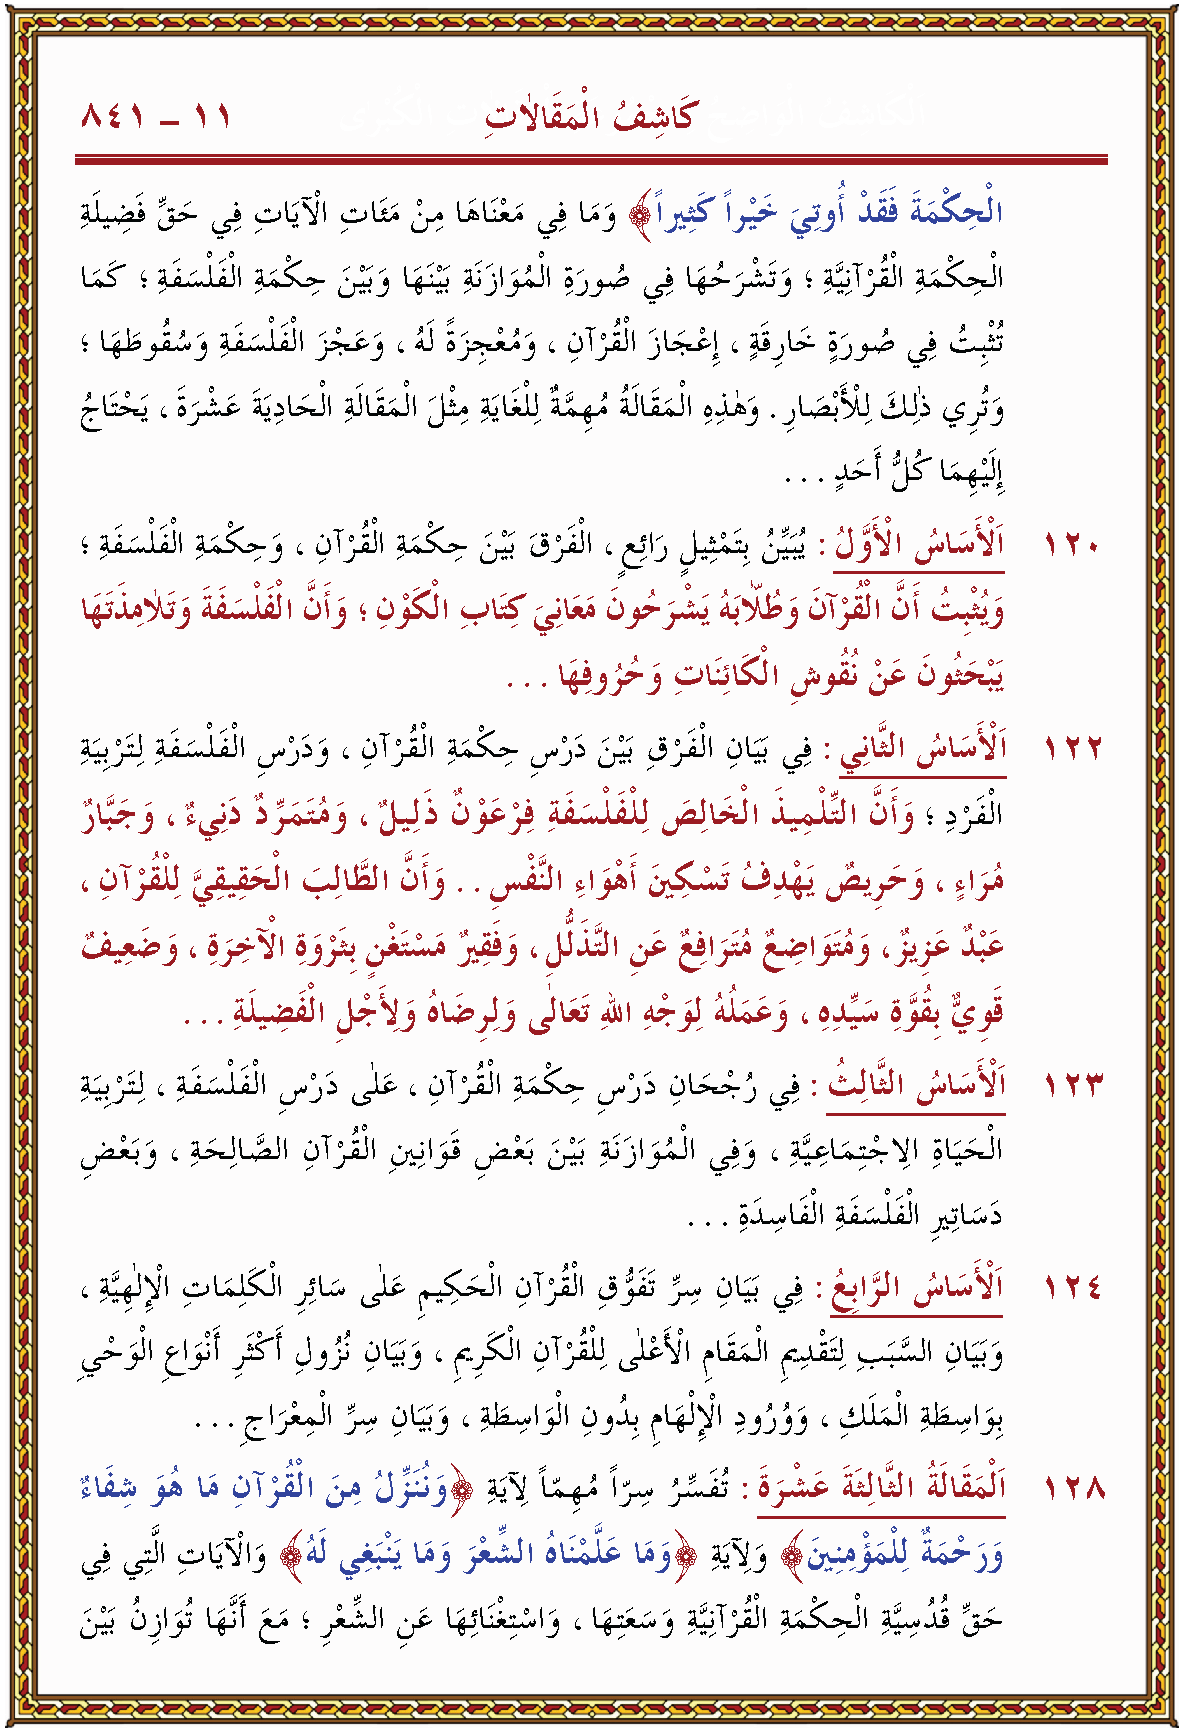 كَاشِفُ الْمَقَالَاتِ ٨٤١ – ١١
الْحِكْمَةَ فَقَدْ أُوتِيَ خَيْراً كَثِيراً﴾ وَمَا فِي مَعْنَاهَا مِنْ مَئَاتِ الْآيَاتِ فِي حَقِّ فَضِيلَةِ
الْحِكْمَةِ الْقُرْآنِيَّةِ ؛ وَتَشْرَحُهَا فِي صُورَةِ الْمُوَازَنَةِ بَيْنَهَا وَبَيْنَ حِكْمَةِ الْفَلْسَفَةِ ؛ كَمَا
تُثْبِتُ فِي صُورَةٍ خَارِقَةٍ ، إِعْجَازَ الْقُرْآنِ ، وَمُعْجِزَةً لَهُ ، وَعَجْزَ الْفَلْسَفَةِ وَسُقُوطَهَا ؛
وَتُرِي ذٰلِكَ لِلْأَبْصَارِ . وَهٰذِهِ الْمَقَالَةُ مُهِمَّةٌ لِلْغَايَةِ مِثْلَ الْمَقَالَةِ الْحَادِيَةَ عَشْرَةَ ، يَحْتَاجُ
إِلَيْهِمَا كُلُّ أَحَدٍ . . .
١٢٠ اَلْأَسَاسُ الْأَوَّلُ : يُبَيِّنُ بِتَمْثِيلٍ رَائِعٍ ، الْفَرْقَ بَيْنَ حِكْمَةِ الْقُرْآنِ ، وَحِكْمَةِ الْفَلْسَفَةِ ؛
وَيُثْبِتُ أَنَّ الْقُرْآنَ وَطُلَّابَهُ يَشْرَحُونَ مَعَانِيَ كِتَابِ الْكَوْنِ ؛ وَأَنَّ الْفَلْسَفَةَ وَتَلَامِذَتَهَا
يَبْحَثُونَ عَنْ نُقُوشِ الْكَائِنَاتِ وَحُرُوفِهَا . . .
١٢٢ اَلْأَسَاسُ الثَّانِي : فِي بَيَانِ الْفَرْقِ بَيْنَ دَرْسِ حِكْمَةِ الْقُرْآنِ ، وَدَرْسِ الْفَلْسَفَةِ لِتَرْبِيَةِ
الْفَرْدِ ؛ وَأَنَّ التِّلْمِيذَ الْخَالِصَ لِلْفَلْسَفَةِ فِرْعَوْنٌ ذَلِيلٌ ، وَمُتَمَرِّدٌ دَنِيءٌ ، وَجَبَّارٌ
مُرَاءٍ ، وَحَرِيصٌ يَهْدِفُ تَسْكِينَ أَهْوَاءِ النَّفْسِ . . وَأَنَّ الطَّالِبَ الْحَقِيقِيَّ لِلْقُرْآنِ ،
عَبْدٌ عَزِيزٌ ، وَمُتَوَاضِعٌ مُتَرَافِعٌ عَنِ التَّذَلُّلِ ، وَفَقِيرٌ مَسْتَغْنٍ بِثَرْوَةِ الْآخِرَةِ ، وَضَعِيفٌ
قَوِيٌّ بِقُوَّةِ سَيِّدِهِ ، وَعَمَلُهُ لِوَجْهِ اللهِ تَعَالٰى وَلِرِضَاهُ وَلِأَجْلِ الْفَضِيلَةِ . . .
١٢٣ اَلْأَسَاسُ الثَّالِثُ : فِي رُجْحَانِ دَرْسِ حِكْمَةِ الْقُرْآنِ ، عَلٰى دَرْسِ الْفَلْسَفَةِ ، لِتَرْبِيَةِ
الْحَيَاةِ الِاجْتِمَاعِيَّةِ ، وَفِي الْمُوَازَنَةِ بَيْنَ بَعْضِ قَوَانِينِ الْقُرْآنِ الصَّالِحَةِ ، وَبَعْضِ
دَسَاتِيرِ الْفَلْسَفَةِ الْفَاسِدَةِ . . .
١٢٤ اَلْأَسَاسُ الرَّابِعُ : فِي بَيَانِ سِرِّ تَفَوُّقِ الْقُرْآنِ الْحَكِيمِ عَلٰى سَائِرِ الْكَلِمَاتِ الْإِلٰهِيَّةِ ،
وَبَيَانِ السَّبَبِ لِتَقْدِيمِ الْمَقَامِ الْأَعْلٰى لِلْقُرْآنِ الْكَرِيمِ ، وَبَيَانِ نُزُولِ أَكْثَرِ أَنْوَاعِ الْوَحْيِ
بِوَاسِطَةِ الْمَلَكِ ، وَوُرُودِ الْإِلْهَامِ بِدُونِ الْوَاسِطَةِ ، وَبَيَانِ سِرِّ الْمِعْرَاجِ . . .
١٢٨ اَلْمَقَالَةُ الثَّالِثَةَ عَشْرَةَ : تُفَسِّرُ سِرّاً مُهِمّاً لِآيَةِ ﴿وَنُنَزِّلُ مِنَ الْقُرْآنِ مَا هُوَ شِفَاءٌ
وَرَحْمَةٌ لِلْمُؤْمِنِينَ﴾ وَلِآيَةِ ﴿وَمَا عَلَّمْنَاهُ الشِّعْرَ وَمَا يَنْبَغِي لَهُ﴾ وَالْآيَاتِ الَّتِي فِي
حَقِّ قُدُسِيَّةِ الْحِكْمَةِ الْقُرْآنِيَّةِ وَسَعَتِهَا ، وَاسْتِغْنَائِهَا عَنِ الشِّعْرِ ؛ مَعَ أَنَّهَا تُوَازِنُ بَيْنَ